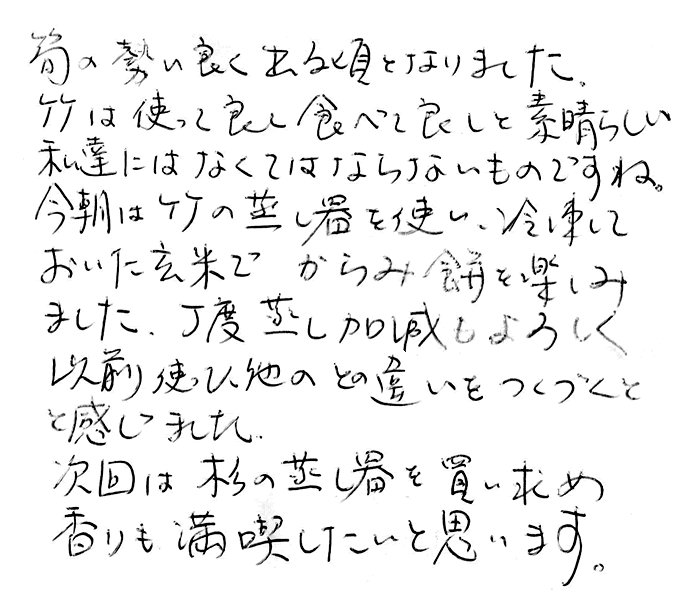 筍の勢い良く出る頃となりました。
竹は使って良し食べて良しと素晴らしい
私達にはなくてはならないものですね。
今朝は竹の蒸し器を使い、冷凍して
おいた玄米で からみ餅を楽しみ
ました、丁度蒸し加減もよろしく
以前使った他のとの違いをつくづくと
と感じました、
次回は杉の蒸し器を買い求め
香りも満喫したいと思います。